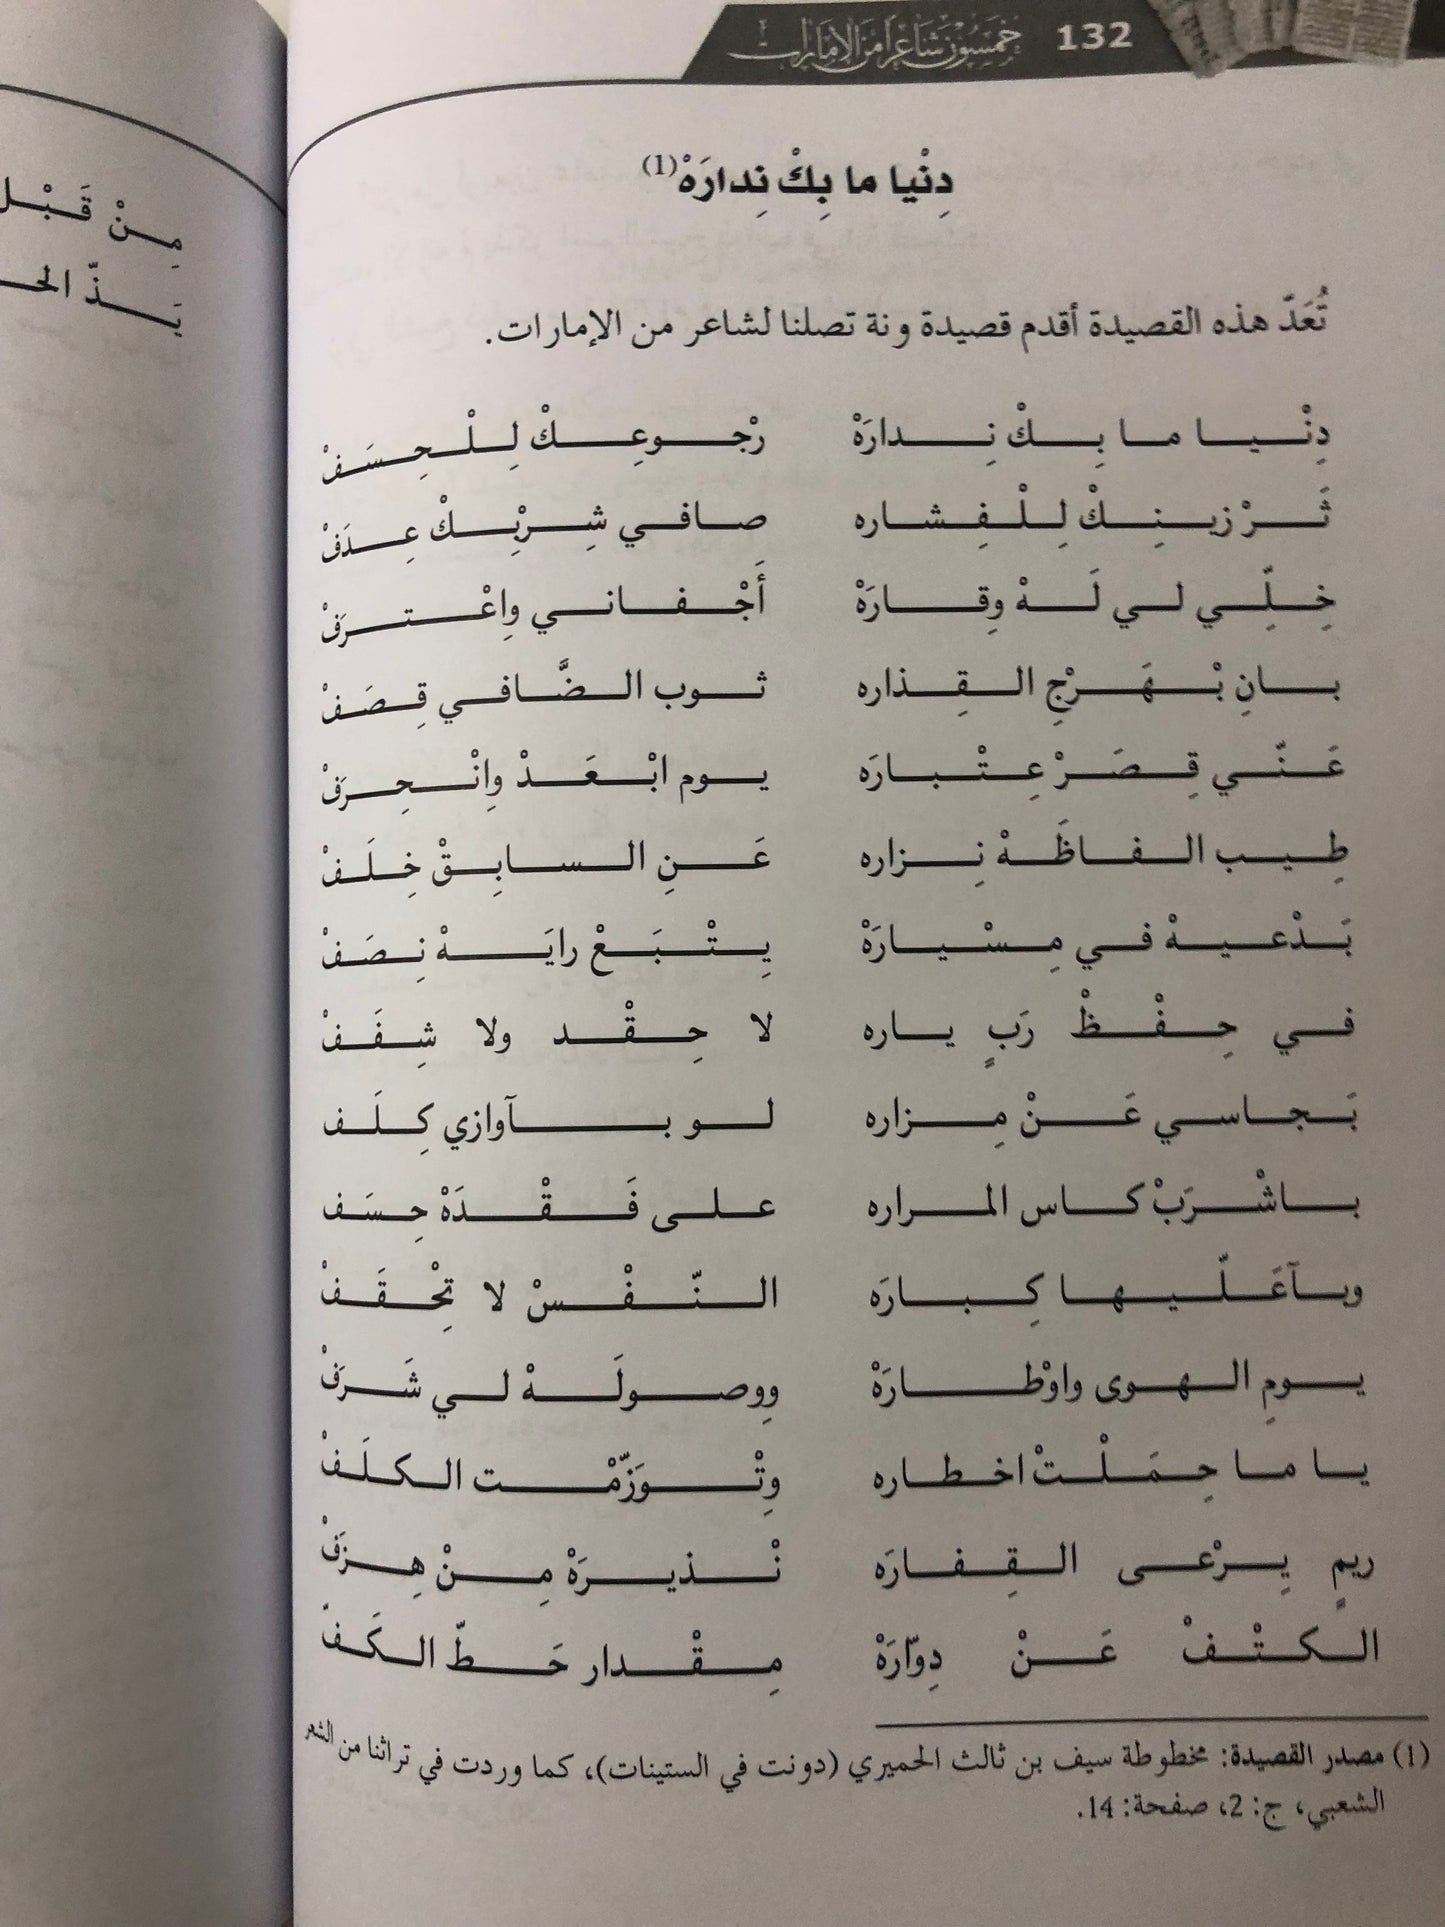 132 خمسون شاعراً من الإمارات
دِنْيا ما بِكْ نِدارَهْ(1)
تُعَدّ هذه القصيدة أقدم قصيدة ونة تصلنا لشاعر من الإمارات.
دِنْيا ما بِكْ نِدارَهْ رْجوعِكْ لِلْحِسَفْ
ثَرْ زينِكْ لِلْفِشاره صافي شِرْبِكْ عِدَفْ
خِلِّي لي لَهْ وِقارَهْ أَجْفاني واِعْترَفْ
بانِ بْهَرْجِ القِذاره ثوب الضَّافي قِصَفْ
عَنّي قِصَرْ عِتْبارَه يوم ابْعَدْ واِنْحِرَفْ
طِيب الفاظَهْ نِزاره عَنِ السابِقْ خِلَفْ
بَدْعيهْ في مِسْيارَهْ يِتْبَعْ رايَهْ نِصَفْ
في حِفْظْ رَبٍ ياره لا حِقْد ولا شِفَفْ
بَجاسي عَنْ مِزاره لو بآوازي كِلَف
باشْرَبْ كاس المراره على فَقْدَهْ حِسَف
وبآعَلّيها كِبارَه النّفْسْ لا تِحْقَفْ
يومِ الهوى واوْطارَهْ ووِصولَهْ لي شَرَفْ
يا ما حِمَلْتْ اخطاره وِتْوَزّمْت الكلَفْ
ريمٍ يِرْعى القِفارَه نْذيرَهْ مِنْ هِزَفْ
الكتْفْ عَنْ دِوّارَهْ مِقْدار حَطّ الكَفّ
(1) مصدر القصيدة: مخطوطة سيف بن ثالث الحميري (دونت في الستينات)، كما وردت في تراثنا من الشعر
الشعبي، ج: 2، صفحة: 14.
مِنْ قَبْل
يَذّ الحـ